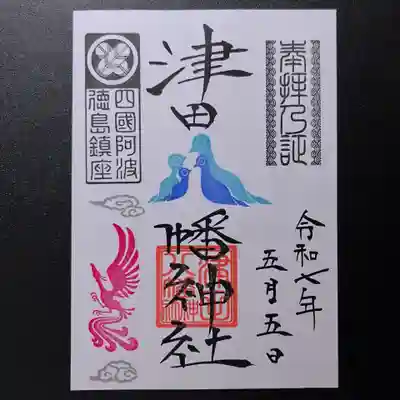 奉拝乃証
令和七年
五月五日
津田
幡神社
四國阿波
徳島鎮座